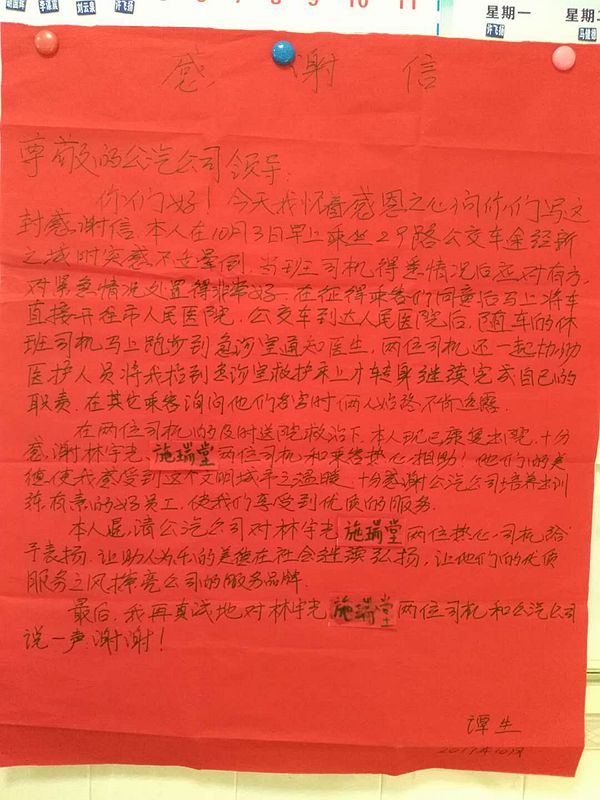 许飞扬
6 7 8 9 10 11
星期一
许飞扬
感 谢 信
尊敬的公汽公司领导:
你们好!今天我怀着感恩之心向你们写这
封感谢信.本人在10月3日早上乘坐29路公交车途经新
之城时突感不适晕倒.当班司机得悉情况后应对有方,
对紧急情况处置得非常好.在征得乘客们同意后马上将车
直接开往市人民医院.公交车到达人民医院后,随车的休
班司机马上跑步到急诊室通知医生,两位司机还一起协助
医护人员将我抬到急诊室救护床上才转身继续完成自己的
职责.在其它乘客询问他们名字时俩人始终不肯透露.
在两位司机的及时送院救治下.本人现已康复出院.十分
感谢林宇光、施瑞堂两位司机和乘客热心相助!他们的美
德使我感受到这个文明城市之温暖.十分感谢公汽公司培养出训
练有素的好员工,使我们享受到优质的服务.
本人恳请公汽公司对林宇光 施瑞堂 两位热心司机给
予表扬.让助人为乐的美德在社会继续弘扬,让他们的优质
服务之风擦亮公司的服务品牌.
最后,我再真诚地对林宇光 施瑞堂 两位司机和公汽公司
说一声谢谢!
谭生
2019年10月